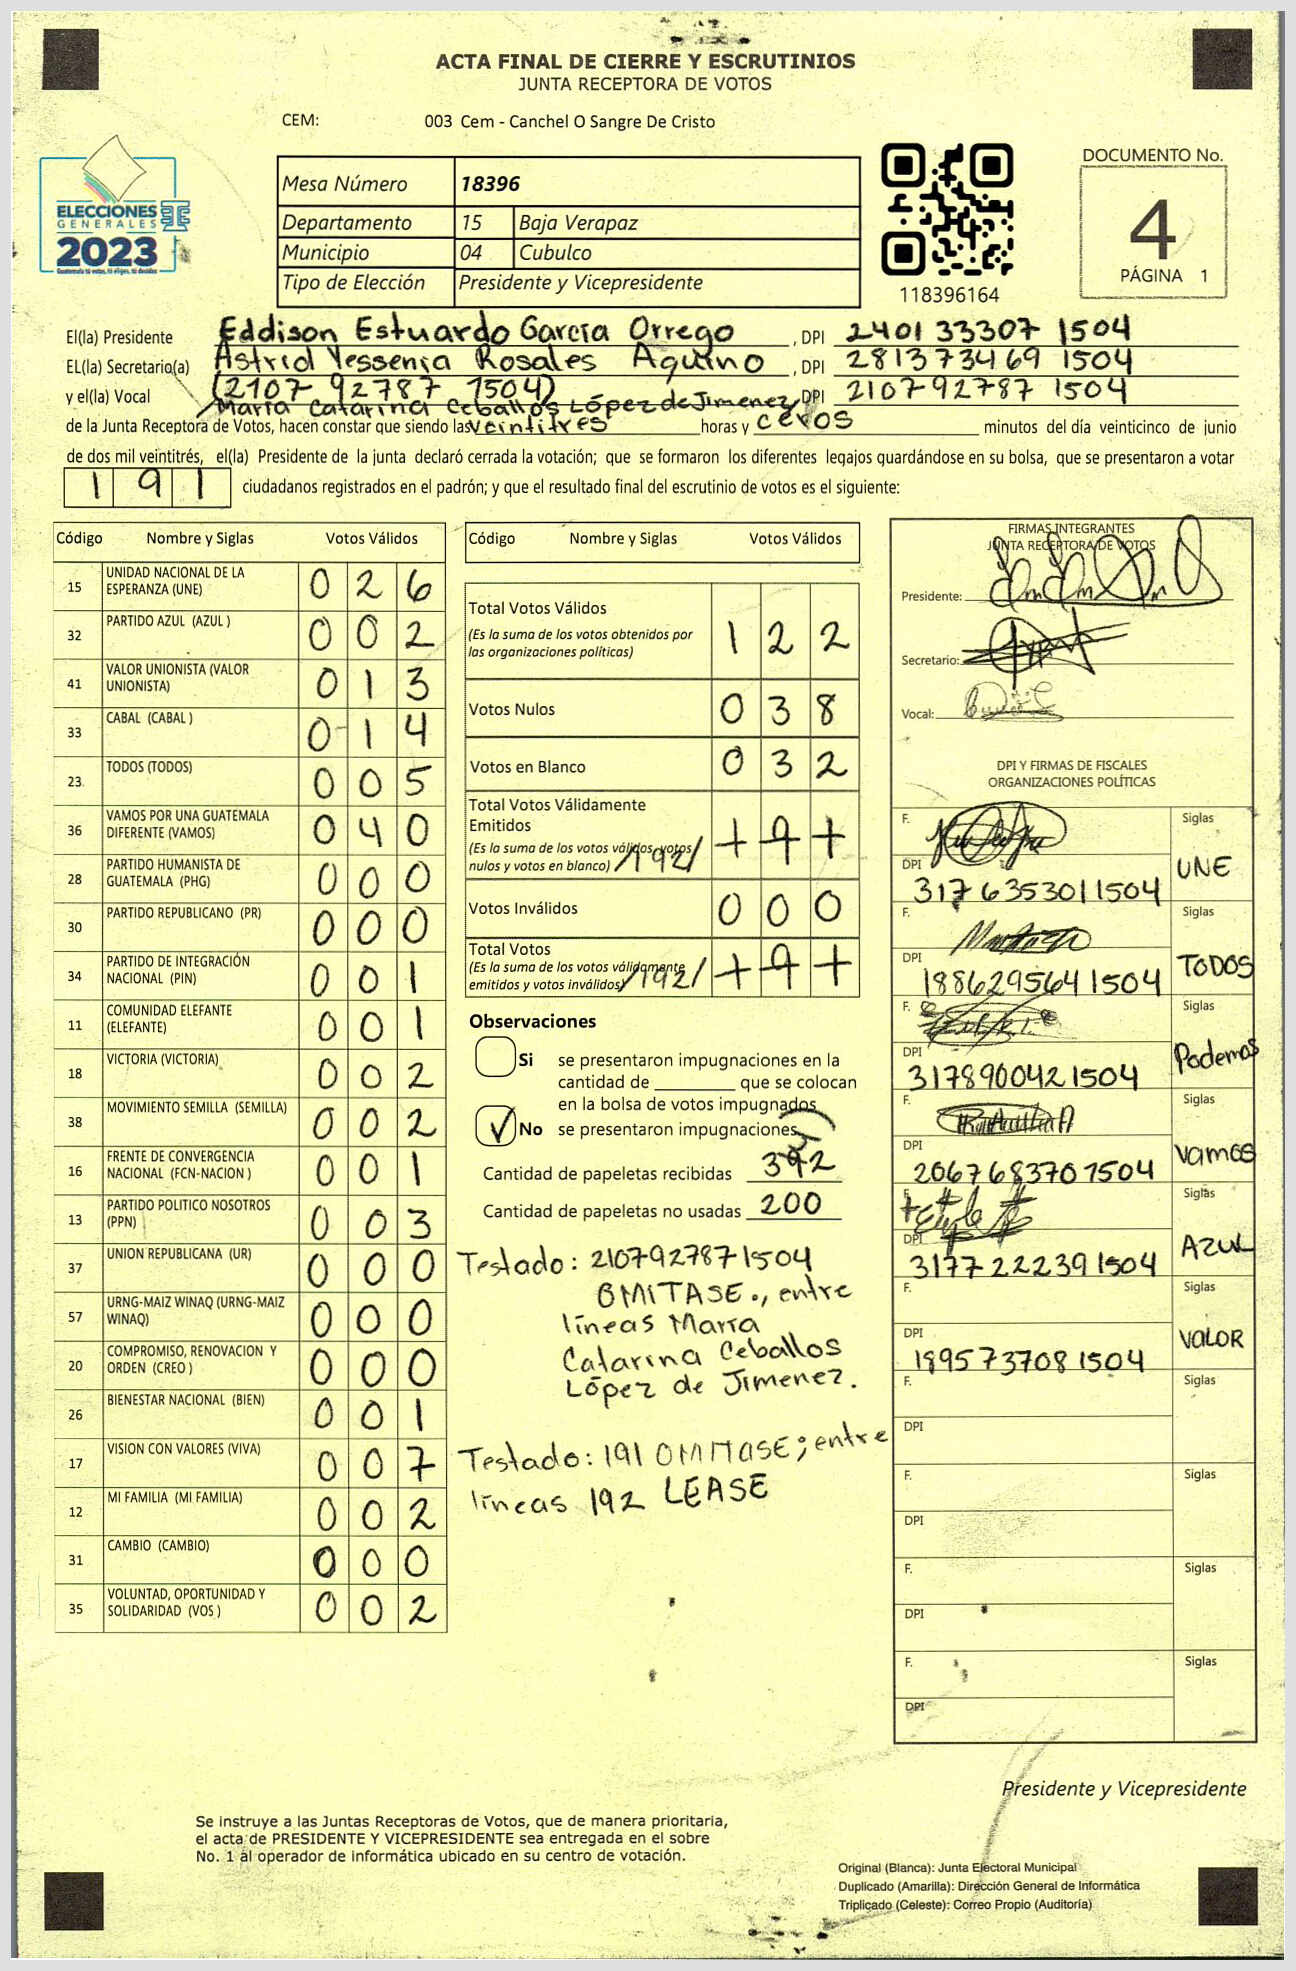 ACTA FINAL DE CIERRE Y ESCRUTINIOS
JUNTA RECEPTORA DE VOTOS
CEM: 003 Cem - Canchel O Sangre De Cristo
ELECCIONES
GENERALES
2023
Guatemala tú votas, tú eliges, tú decides
Mesa Número 18396
Departamento 15 Baja Verapaz
Municipio 04 Cubulco
Tipo de Elección Presidente y Vicepresidente
118396164
DOCUMENTO No.
4
PÁGINA 1
El(la) Presidente Eddison Estuardo García Orrego, DPI 2401 33307 1504
EL(la) Secretario(a) Astrid Yessenia Rosales Aquino, DPI 281373469 1504
y el(la) Vocal (2107 92787 1504), DPI 210792787 1504
María Catarina Ceballos López de Jimenez
de la Junta Receptora de Votos, hacen constar que siendo las veintitres horas y ceros minutos del día veinticinco de junio
de dos mil veintitrés, el(la) Presidente de la junta declaró cerrada la votación; que se formaron los diferentes legajos guardándose en su bolsa, que se presentaron a votar
191 ciudadanos registrados en el padrón; y que el resultado final del escrutinio de votos es el siguiente:
Código Nombre y Siglas Votos Válidos
15 UNIDAD NACIONAL DE LA ESPERANZA (UNE) 026
32 PARTIDO AZUL (AZUL ) 002
41 VALOR UNIONISTA (VALOR UNIONISTA) 013
33 CABAL (CABAL ) 014
23 TODOS (TODOS) 005
36 VAMOS POR UNA GUATEMALA DIFERENTE (VAMOS) 040
28 PARTIDO HUMANISTA DE GUATEMALA (PHG) 000
30 PARTIDO REPUBLICANO (PR) 000
34 PARTIDO DE INTEGRACIÓN NACIONAL (PIN) 001
11 COMUNIDAD ELEFANTE (ELEFANTE) 001
18 VICTORIA (VICTORIA) 002
38 MOVIMIENTO SEMILLA (SEMILLA) 002
16 FRENTE DE CONVERGENCIA NACIONAL (FCN-NACION ) 001
13 PARTIDO POLITICO NOSOTROS (PPN) 003
37 UNION REPUBLICANA (UR) 000
57 URNG-MAIZ WINAQ (URNG-MAIZ WINAQ) 000
20 COMPROMISO, RENOVACION Y ORDEN (CREO ) 000
26 BIENESTAR NACIONAL (BIEN) 001
17 VISION CON VALORES (VIVA) 007
12 MI FAMILIA (MI FAMILIA) 002
31 CAMBIO (CAMBIO) 000
35 VOLUNTAD, OPORTUNIDAD Y SOLIDARIDAD (VOS ) 002
Código Nombre y Siglas Votos Válidos
Total Votos Válidos 122
(Es la suma de los votos obtenidos por
las organizaciones políticas)
Votos Nulos 038
Votos en Blanco 032
Total Votos Válidamente
Emitidos 191
(Es la suma de los votos válidos, votos
nulos y votos en blanco) /192/
Votos Inválidos 000
Total Votos 191
(Es la suma de los votos válidamente
emitidos y votos inválidos) /192/
Observaciones
Si se presentaron impugnaciones en la
cantidad de ________ que se colocan
en la bolsa de votos impugnados
✓ No se presentaron impugnaciones
Cantidad de papeletas recibidas 392
Cantidad de papeletas no usadas 200
Testado: 2107927871504
OMITASE., entre
líneas María
Catarina Ceballos
López de Jimenez.
Testado: 191 OMITASE; entre
líneas 192 LEASE
FIRMAS INTEGRANTES
JUNTA RECEPTORA DE VOTOS
Presidente:
Secretario:
Vocal:
DPI Y FIRMAS DE FISCALES
ORGANIZACIONES POLÍTICAS
F. Siglas
DPI 3176353011504 UNE
F. Siglas
DPI 1886295641504 TODOS
F. Siglas
DPI 3178900421504 Podemos
F. Siglas
DPI 2067683701504 Vamos
F. Siglas
DPI 3177222391504 AZUL
F. Siglas
DPI 1895737081504 VALOR
F. Siglas
DPI
F. Siglas
DPI
F. Siglas
DPI
F. Siglas
DPI
Presidente y Vicepresidente
Se instruye a las Juntas Receptoras de Votos, que de manera prioritaria,
el acta de PRESIDENTE Y VICEPRESIDENTE sea entregada en el sobre
No. 1 al operador de informática ubicado en su centro de votación.
Original (Blanca): Junta Electoral Municipal
Duplicado (Amarilla): Dirección General de Informática
Triplicado (Celeste): Correo Propio (Auditoría)